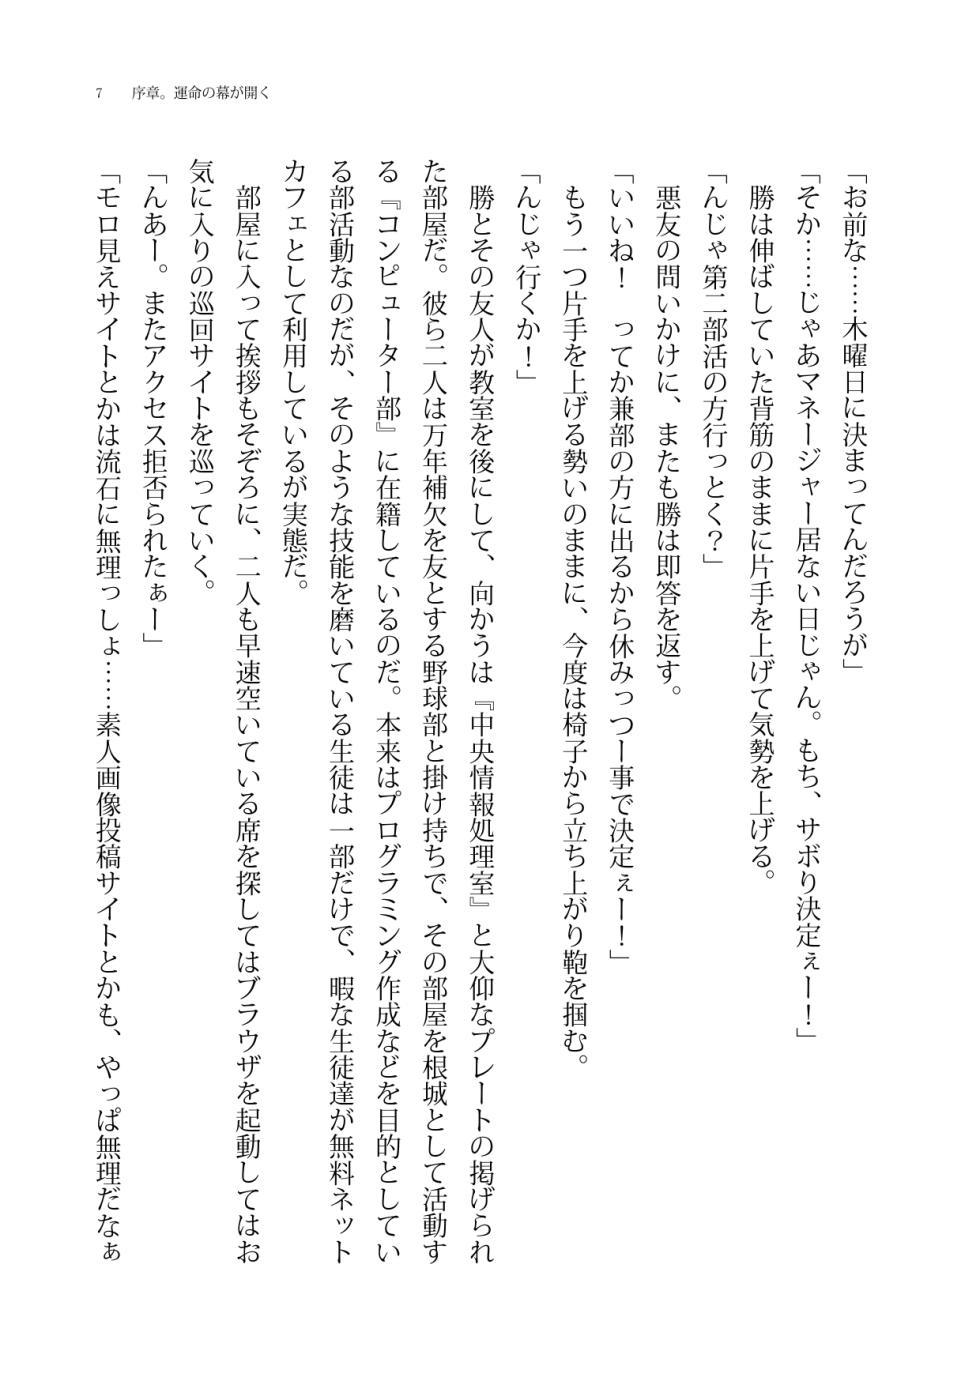 7　序章。運命の幕が開く
「お前な……木曜日に決まってんだろうが」
「そか……じゃあマネージャー居ない日じゃん。もち、サボり決定ぇー！」
　勝は伸ばしていた背筋のままに片手を上げて気勢を上げる。
「んじゃ第二部活の方行っとく？」
　悪友の問いかけに、またも勝は即答を返す。
「いいね！　ってか兼部の方に出るから休みっつー事で決定ぇー！」
　もう一つ片手を上げる勢いのままに、今度は椅子から立ち上がり鞄を掴む。
「んじゃ行くか！」
　勝とその友人が教室を後にして、向かうは『中央情報処理室』と大仰なプレートの掲げられ
た部屋だ。彼ら二人は万年補欠を友とする野球部と掛け持ちで、その部屋を根城として活動す
る『コンピューター部』に在籍しているのだ。本来はプログラミング作成などを目的としてい
る部活動なのだが、そのような技能を磨いている生徒は一部だけで、暇な生徒達が無料ネット
カフェとして利用しているが実態だ。
　部屋に入って挨拶もそぞろに、二人も早速空いている席を探してはブラウザを起動してはお
気に入りの巡回サイトを巡っていく。
「んあー。またアクセス拒否られたぁー」
「モロ見えサイトとかは流石に無理っしょ……素人画像投稿サイトとかも、やっぱ無理だなぁ